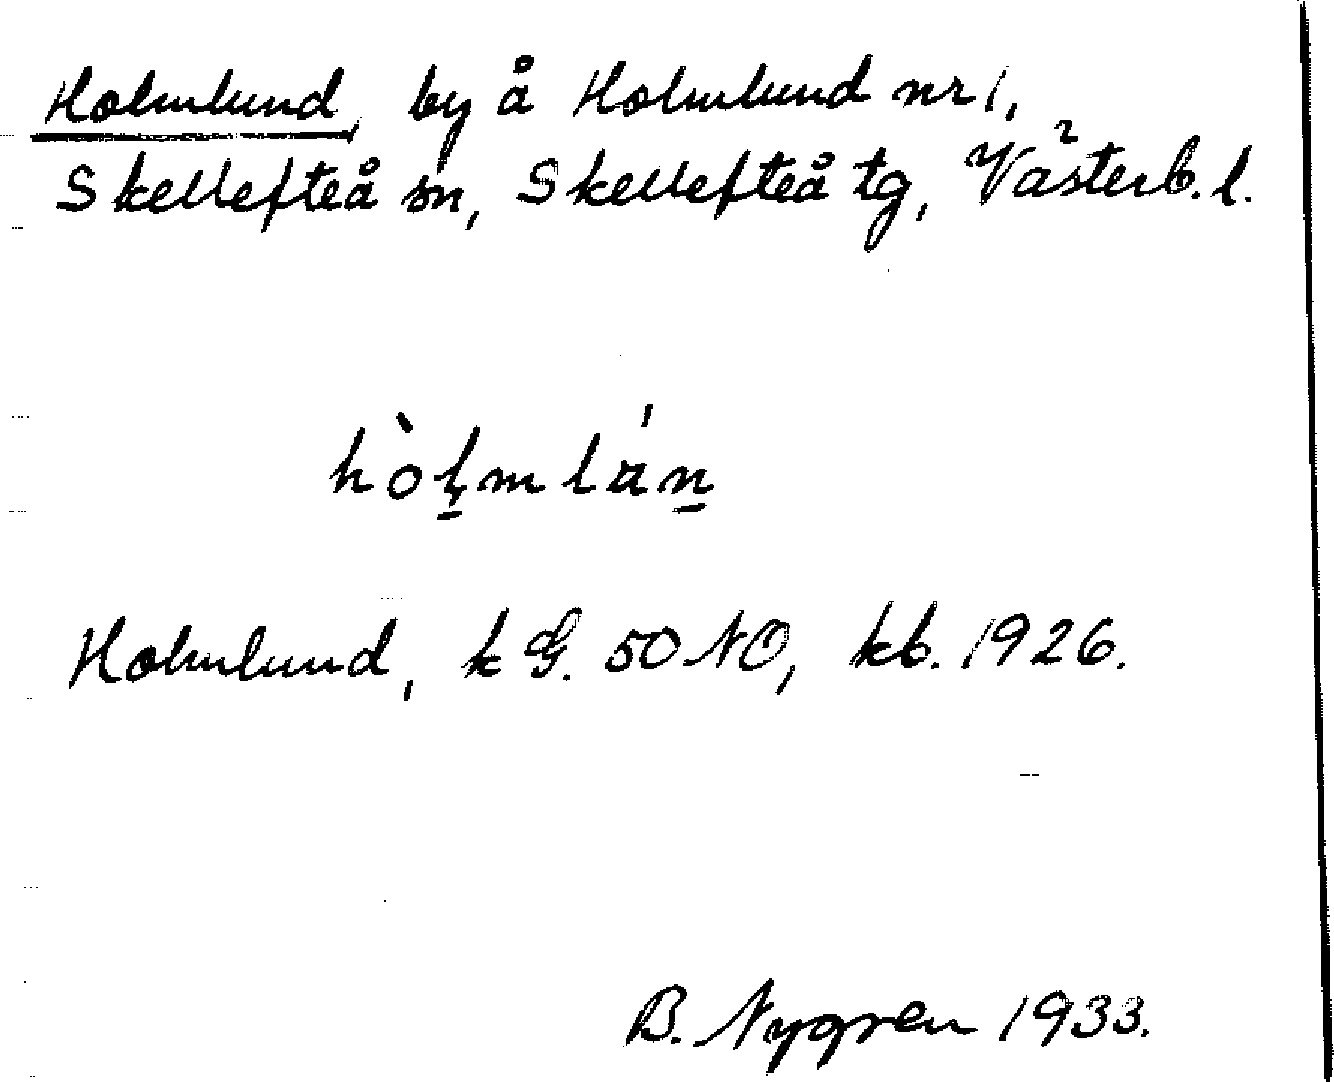 Holmlund, by å Holmlund nr 1,
Skellefteå sn, Skellefteå tg, Västerb. l.
hòl̠mlán̠
Holmlund, k G. 50 NO, kb. 1926.
B. Nygren 1933.